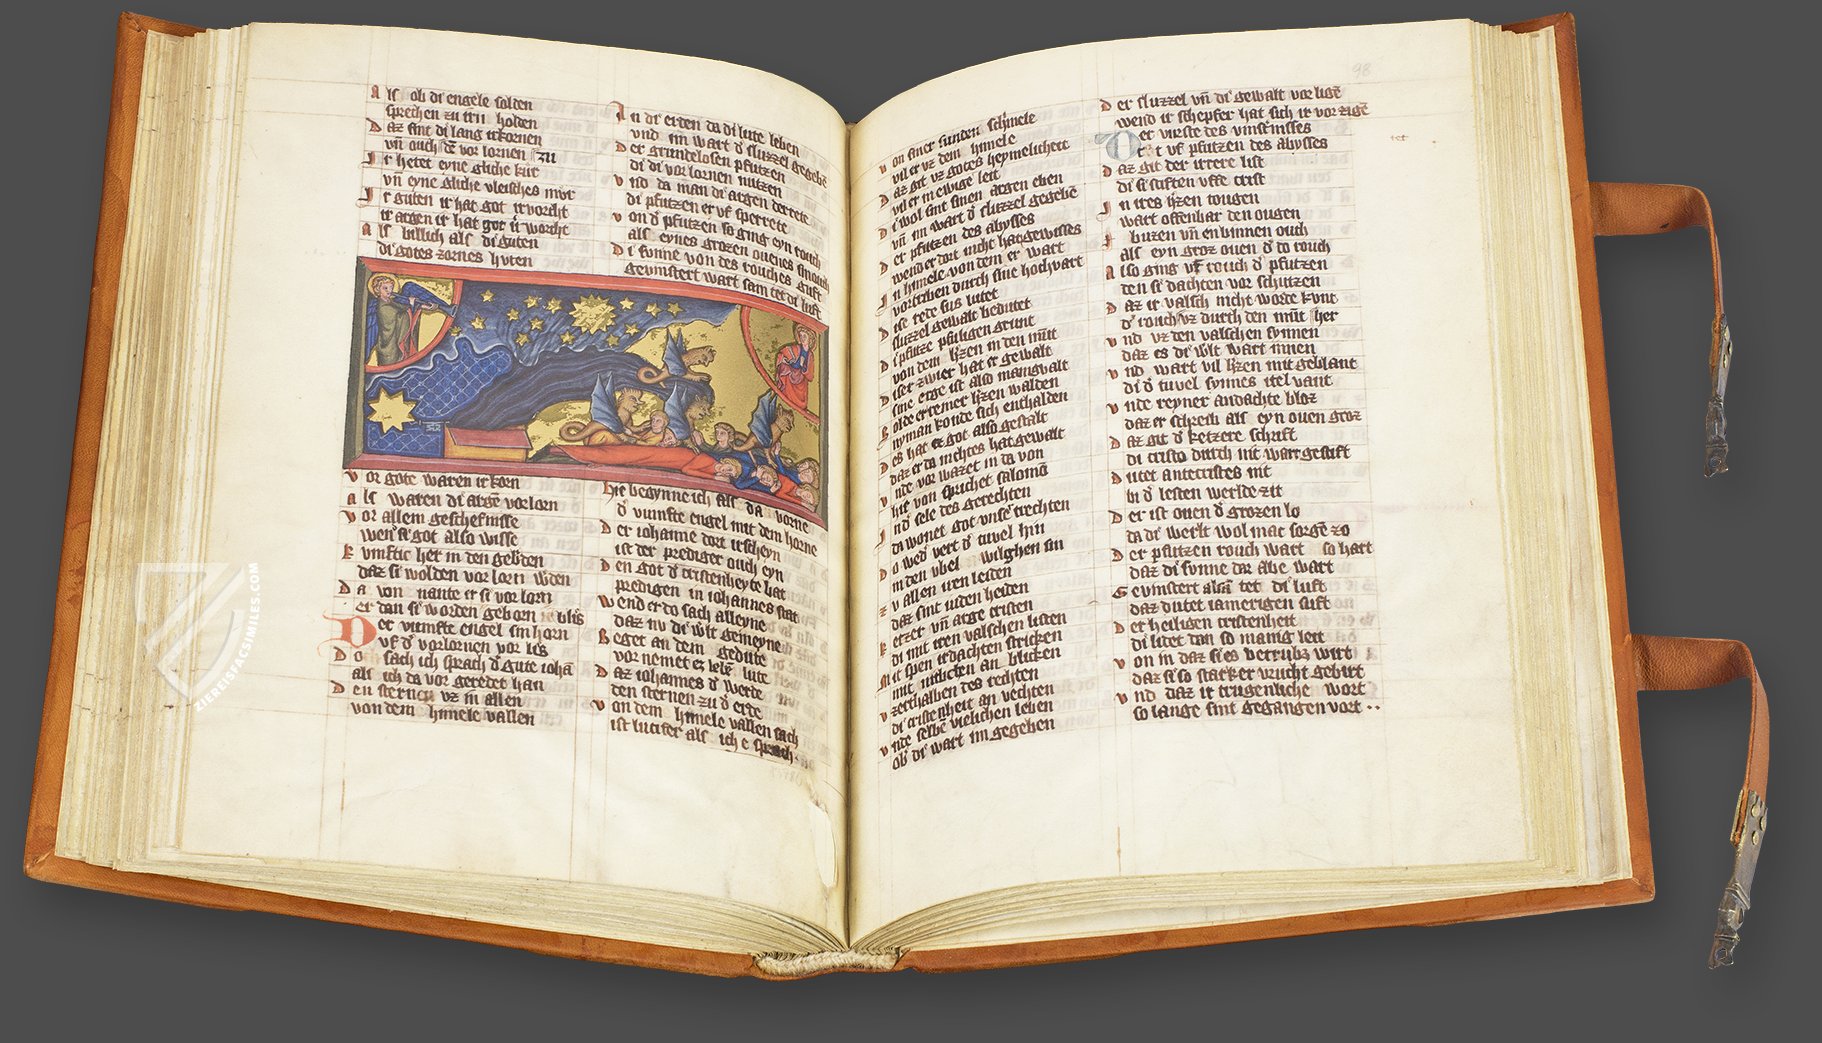 Als ob di engele solden
sprechen zu irn holden
Daz sint di lang irkornen
vn̄ ouch de vor lornen zu
Ir hetet eyne gliche kur
vn̄ eyne gliche vleisches mur
Ir guten ir hat got irvorcht
ir argen ir hat got
Als billich als di guten
di gotes zornes huten
vor gote waren irkorn
als waren di arge vorlorn
vor allem geschefnisse
wen si got also wisse
kunftic het in den gebden
daz si wolden vor lorn
Da von nante er si vor lorn
er dan si worden geborn
Der vumfte engel sin horn
uf der vorlornen vor lis
Do sach ich sprach d gute
als ich da vor geredet han
Den sternen vz in allen
von dem hmele vallen
In di erden da di lute leben
vnd im wart d sluzzel gegeben
Der grundelosen pfutzen
di di vor lornen nutzen
vnd da man di argen derrete
di pfutzen er uf sperrete
von d pfutzen so ging eyn rouch
als eynes grozen ouenes smouch
Di sunne von des rouches guft
gevinstert wart sam tet di luft
hie begynne ich als da vorne
d vumfte engel mit dem horne
Der iohanne dort irscheyn
ist der prediger ouch eyn
Den got d cristenheyte hat
predigen in iohannes stat
Wend er do sach alleyne
daz nu di gemeyne
an dem gedute
vor nemet lute
Daz iohannes d werde
den sternen zu d erde
von dem hmele vallen sach
ist lucifer als ich e sprach
98
von siner sunden schimele
vil er vz dem himele
Daz git vz gotes heymelicheit
vil er in ewige leit
Di wol sint sinen argen eben
vn̄ im wart d sluzzel gegebē
Der pfutzen des abysses
wend er dort nicht hat gewisses
In himele von dem er wart
vortriben durch sine hochvart
Dise rede sus lutet
sluzzel gewalt bedutet
Di pfutze pfuligen grunt
von dem hzen in den munt
Diser zwier hat er gewalt
sine erge ist also manigvalt
nyman konde sich enthalden
Des hat er got also gestalt
daz er da nichtes hat gewalt
vnde vor wazet in da von
hie von sprichet salomō
In d sele des gerechten
da wonet got vnse trechten
in den vbel wilghen sin
zu allen iren leiden
daz sint iuden heiden
ketzer vn̄ arge cristen
di mit iren valschen listen
irdachten stricken
mit an blicken
des rechten
di cristenheit an vechten
vnde selbe vielichen leben
ob di wart im gegeben
Der sluzzel vn̄ di gewalt vor ligē
wend ir schepfer hat sich ir vor zigē
Der virste des vinsternisses
uf pfutzen des abysses
Daz git der irrere list
di si stiften uffe crist
In ires hzen tougen
wart offenbar den ougen
buzen vn̄ en binnen ouch
als eyn groz ouen d do rouch
also ging uf rouch d pfutzen
den si dachten vor schutzen
Daz ir valsch nicht worde kunt
d rouch vz durch den munt her
vnd vz den valschen synnen
daz es di wlt wart innen
vnd wart vil hzen mit geblant
di d tuvel synnes itel vant
vnde reyner andachte bloz
daz er schreib als eyn ouen groz
Daz git d ketzere schrift
di cristo durch nit wart gestift
Dutet antecristes nit
in d lesten werlde zit
Der ist ouen d grozen lo
da di werlt wol mac sorgē zo
Der pfutzen rouch wart so hart
daz di sunne dar abe wart
Gevinstert alsā tet di luft
daz dutet iamerigen suft
Der heiligen cristenheit
di lidet dan so manig leit
von in daz si es betrubz wirt
daz si so starker vrucht gebirt
vnd daz ir trugenliche wort
so lange sint gegangen vort
ZIEREISFACSIMILES.COM